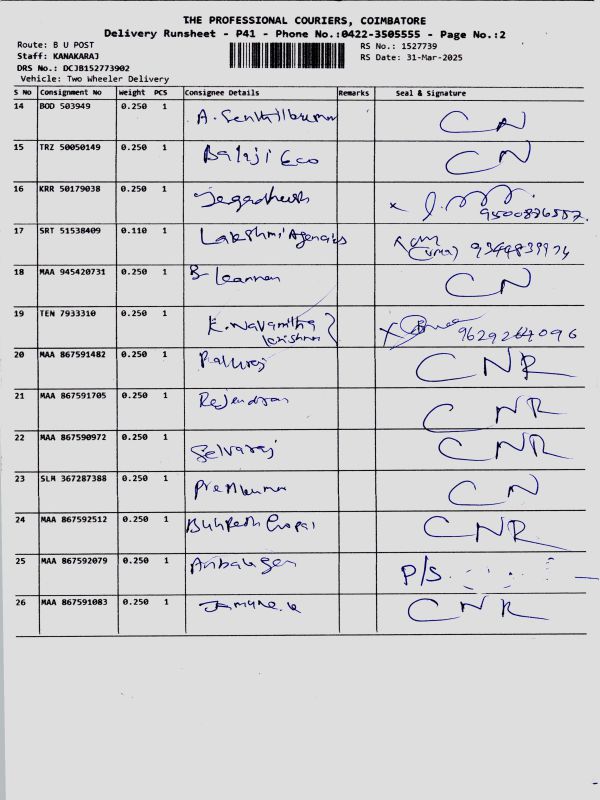 THE PROFESSIONAL COURIERS, COIMBATORE
Delivery Runsheet - P41 - Phone No.:0422-3505555 - Page No.:2
Route: B U POST RS No.: 1527739
Staff: KANAKARAJ RS Date: 31-Mar-2025
DRS No.: DCJB152773902
Vehicle: Two Wheeler Delivery
S No Consignment No Weight PCS Consignee Details Remarks Seal & Signature
14 BOD 503949 0.250 1 A. Senthilkumar CN
15 TRZ 50050149 0.250 1 Balaji Eco CN
16 KRR 50179038 0.250 1 Jegadheesh x
17 SRT 51538409 0.110 1 Lakshmi Agencies
18 MAA 945420731 0.250 1 CN
19 TEN 7933310 0.250 1 K. Navanitha krishnan X 9629264096
20 MAA 867591482 0.250 1 CNR
21 MAA 867591705 0.250 1 Rajendran CNR
22 MAA 867590972 0.250 1 Selvaraj CNR
23 SLM 367287388 0.250 1 Premkumar CN
24 MAA 867592512 0.250 1 CNR
25 MAA 867592079 0.250 1 Anbalagan P/S
26 MAA 867591083 0.250 1 Jamuna. k CNR